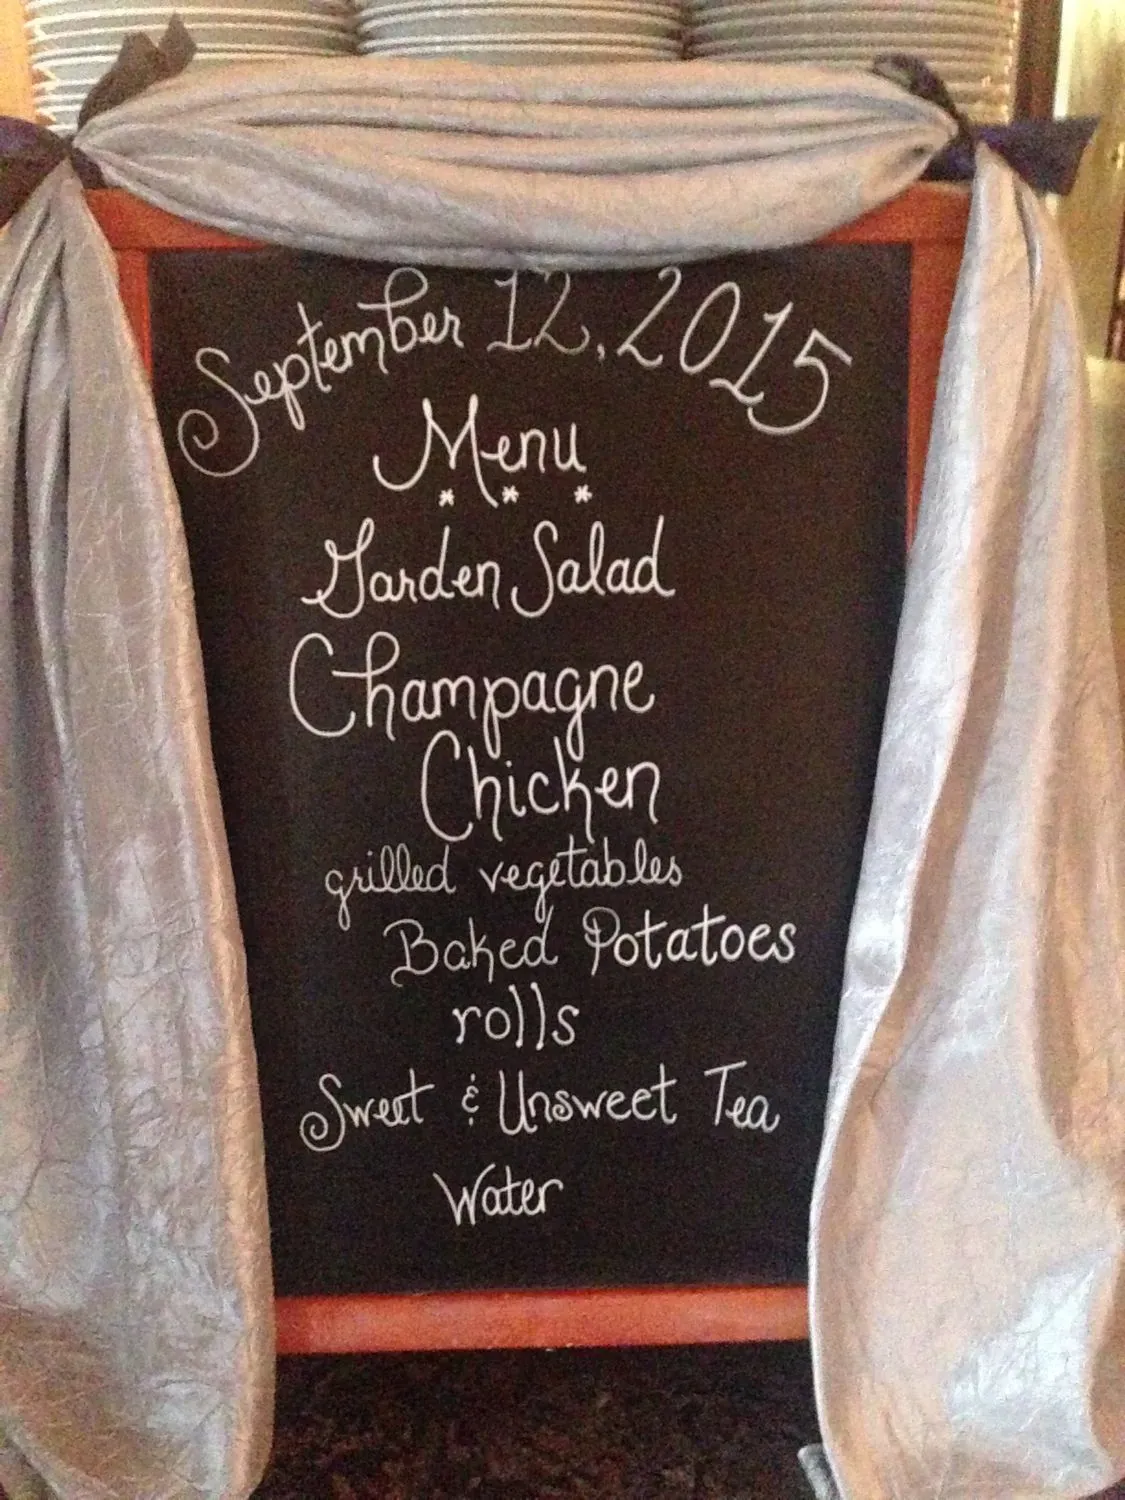 September 12, 2015
Menu
* * *
Garden Salad
Champagne
Chicken
grilled vegetables
Baked Potatoes
rolls
Sweet & Unsweet Tea
Water